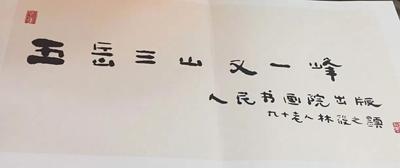 五岳三山又一峰
人民书画院出版
九十老人林筱之題